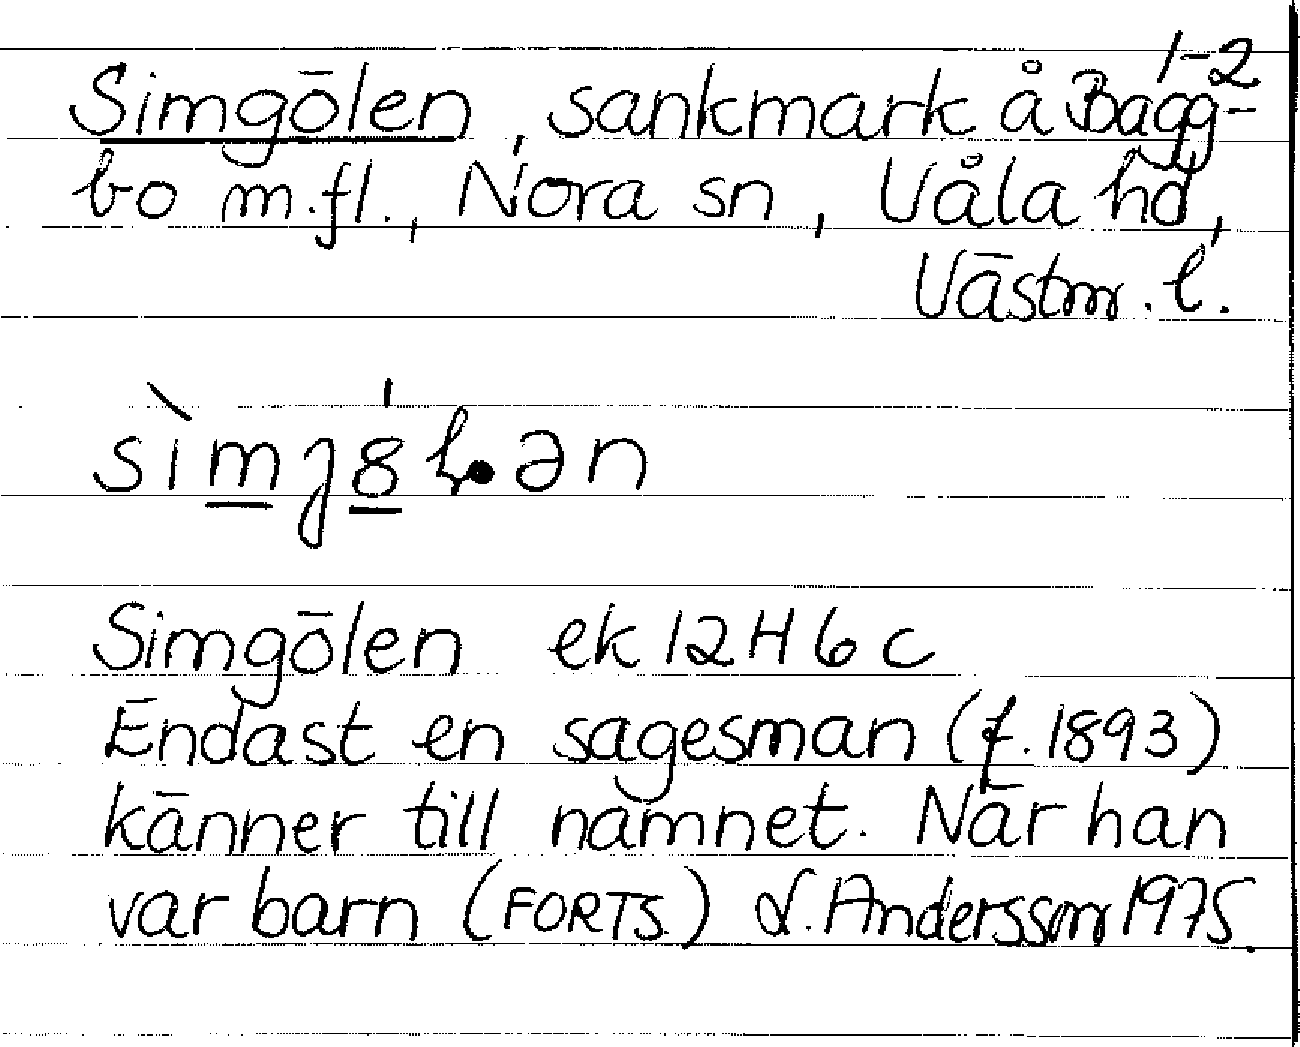 1-2
Simgölen, sankmark å Bagg-
bo m.fl., Nora sn, Våla hd,
Västm. l.
Simgölen ek 12H6c
Endast en sagesman (f. 1893)
känner till namnet. När han
var barn (FORTS.) L. Andersson 1975.